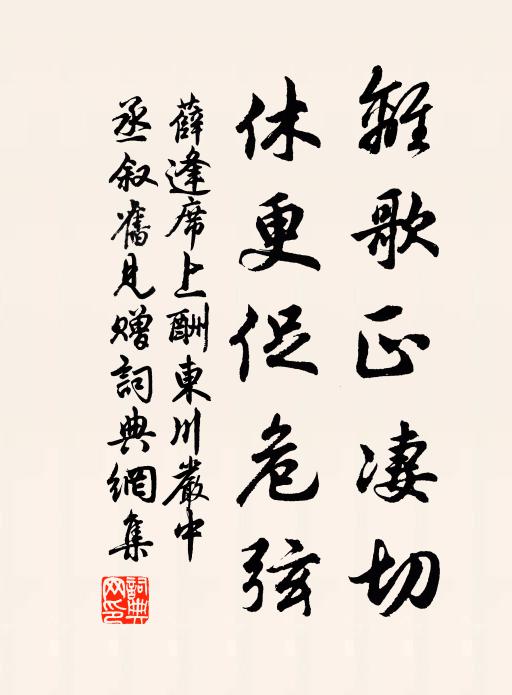 離歌正凄切
休更促危弦
薛逢席上酬東川嚴中
丞叙舊見贈詞典網集
詞典網印